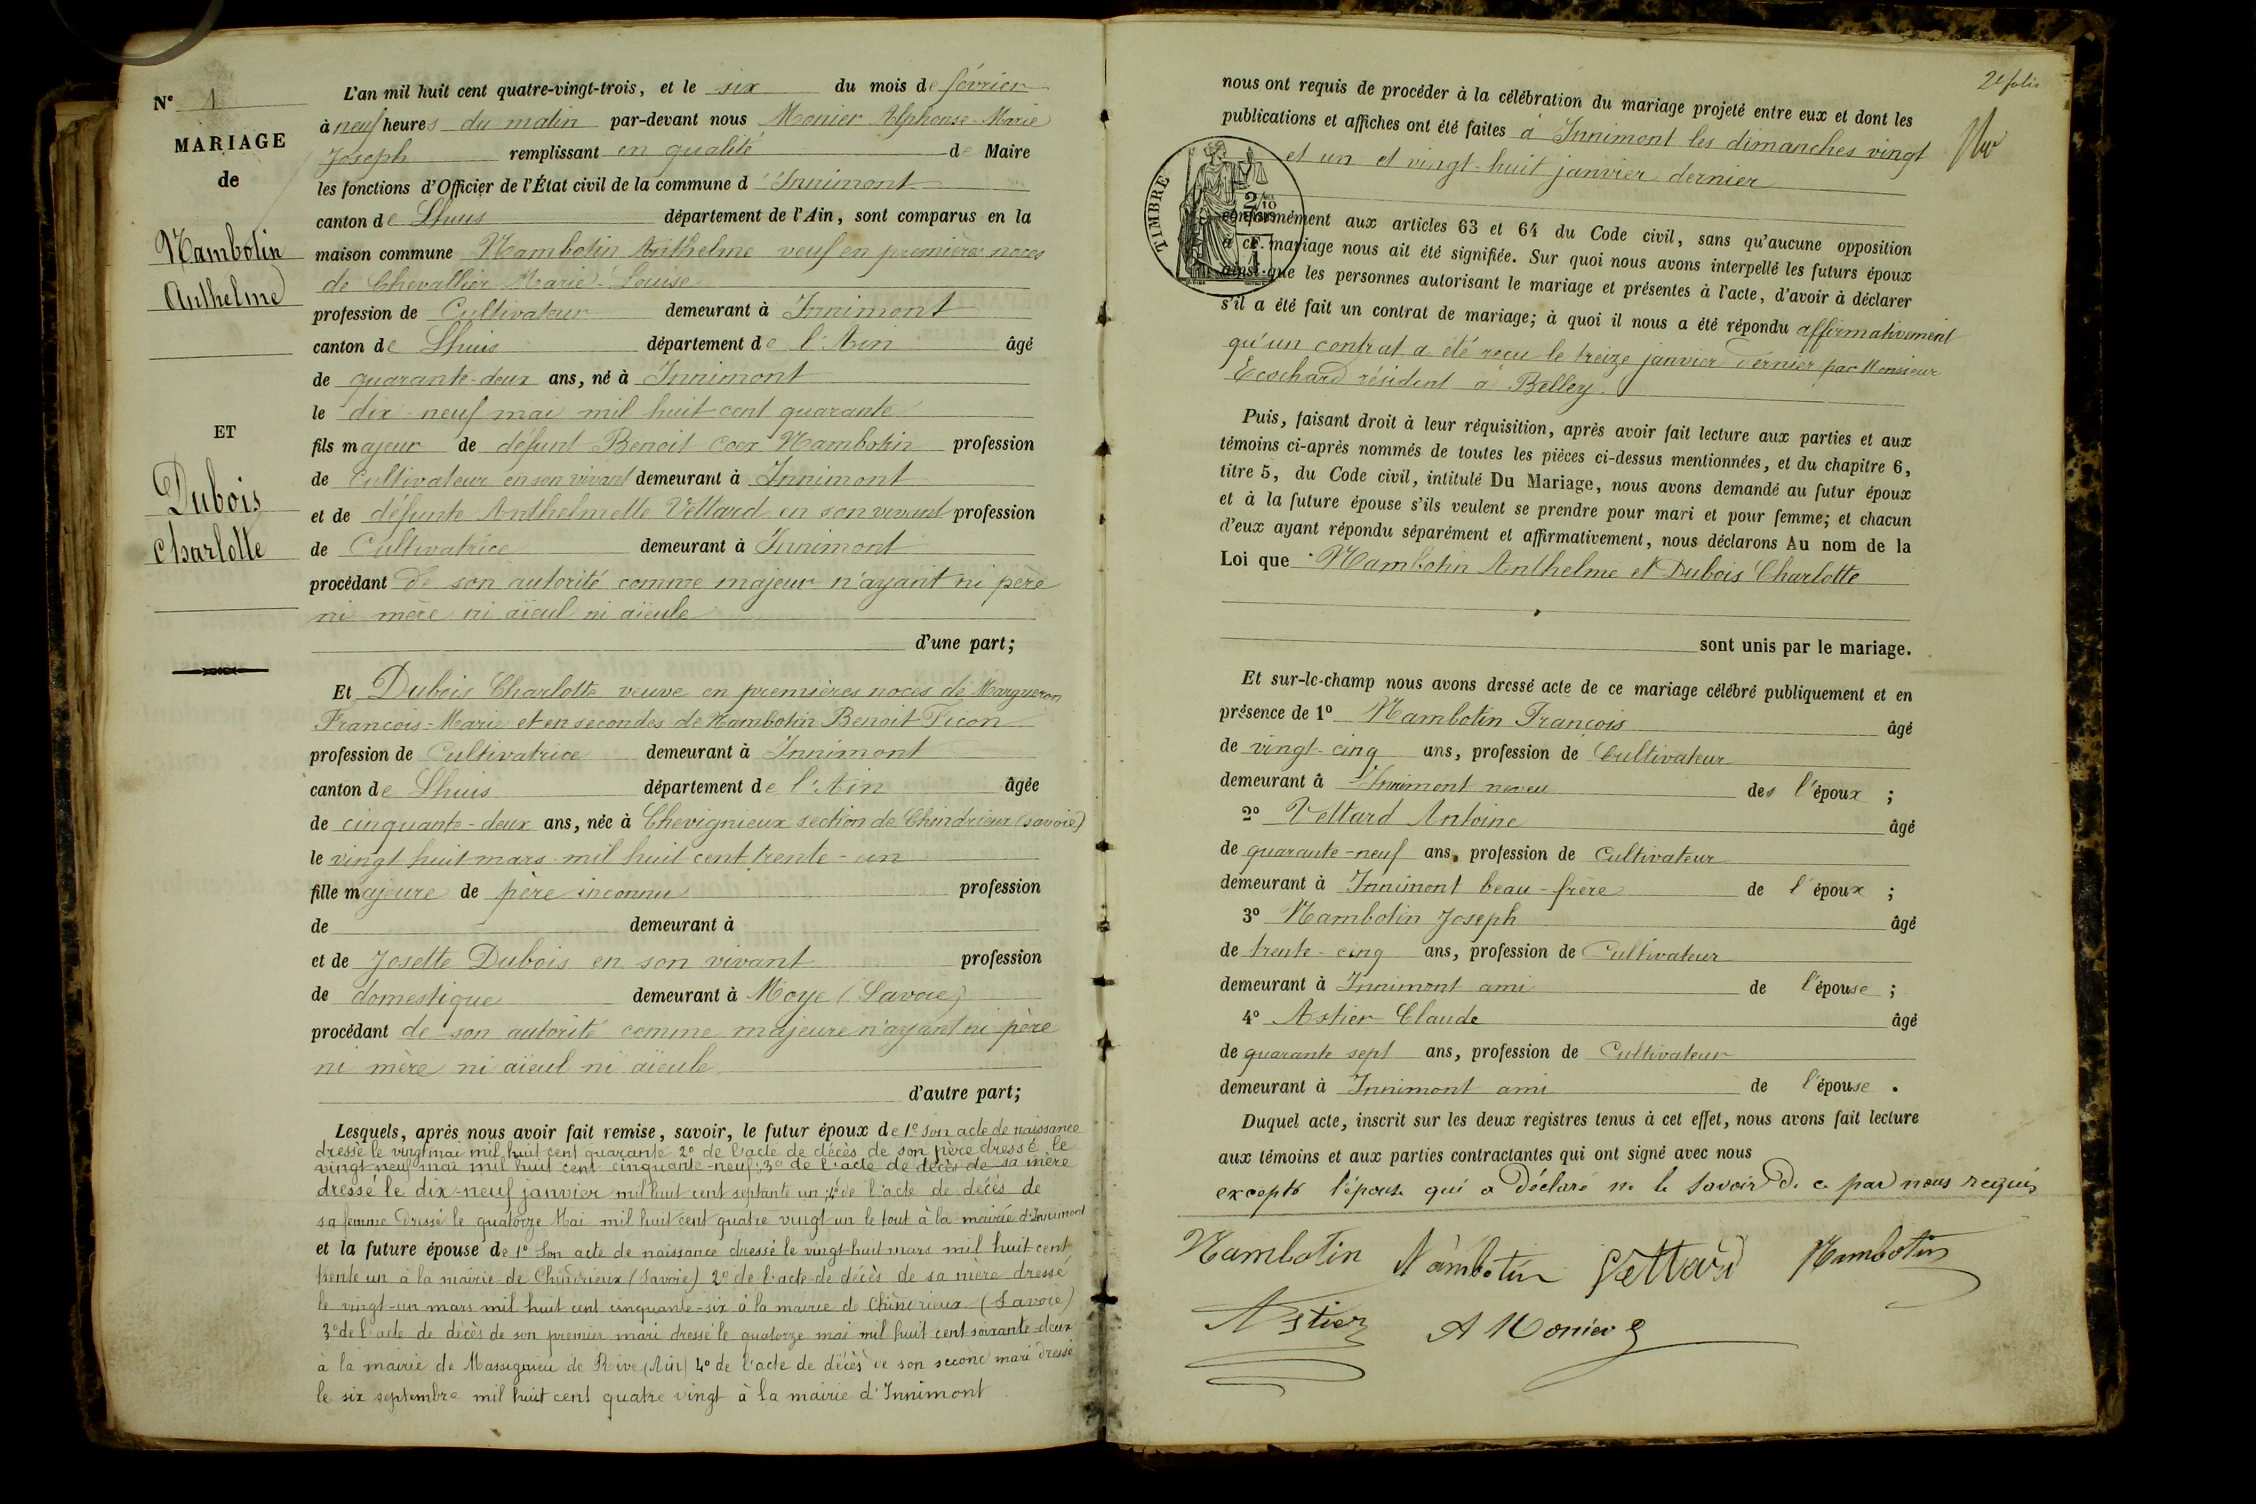 N° 1
MARIAGE
de
Mambotin
Anthelme
ET
Dubois
Charlotte
L'an mil huit cent quatre-vingt-trois, et le six du mois de février
à neuf heures du matin par-devant nous Monier Alphonse-Marie
Joseph remplissant en qualité de Maire
les fonctions d'Officier de l'État civil de la commune d'Innimont
canton de Lhuis département de l'Ain, sont comparus en la
maison commune Mambotin Anthelme veuf en premières noces
de Chevallier Marie-Louise
profession de Cultivateur demeurant à Innimont
canton de Lhuis département de l'Ain âgé
de quarante-deux ans, né à Innimont
le dix-neuf mai mil huit cent quarante
fils majeur de défunt Benoit Mambotin profession
de Cultivateur en son vivant demeurant à Innimont
et de défunte Anthelmette Vettard en son vivant profession
de Cultivatrice demeurant à Innimont
procédant de son autorité comme majeur n'ayant ni père
ni mère ni aïeul ni aïeule
d'une part;
Et Dubois Charlotte veuve en premières noces de Margueron
François-Marie et en secondes de Mambotin Benoit Ticon
profession de Cultivatrice demeurant à Innimont
canton de Lhuis département de l'Ain âgée
de cinquante-deux ans, née à Chevignieux section de Chindrieux (Savoie)
le vingt huit mars mil huit cent trente-un
fille majeure de père inconnu profession
de demeurant à
et de Josette Dubois en son vivant profession
de domestique demeurant à Moye (Savoie)
procédant de son autorité comme majeure n'ayant ni père
ni mère ni aïeul ni aïeule
d'autre part;
Lesquels, après nous avoir fait remise, savoir, le futur époux de 1° son acte de naissance
dressé le vingt mai mil huit cent quarante 2° de l'acte de décès de son père dressé le
vingt neuf mai mil huit cent cinquante-neuf; 3° de l'acte de décès de sa mère
dressé le dix-neuf janvier mil huit cent septante un; 4° de l'acte de décès de
sa femme dressé le quatorze Mai mil huit cent quatre vingt un le tout à la mairie d'Innimont
et la future épouse de 1° son acte de naissance dressé le vingt-huit mars mil huit cent
trente un à la mairie de Chindrieux (Savoie) 2° de l'acte de décès de sa mère dressé
le vingt-un mars mil huit cent cinquante-six à la mairie de Chindrieux (Savoie)
3° de l'acte de décès de son premier mari dressé le quatorze mai mil huit cent soixante-deux
à la mairie de Massignieu de Rive (Ain) 4° de l'acte de décès de son second mari dressé
le six septembre mil huit cent quatre vingt à la mairie d'Innimont
2e folio
nous ont requis de procéder à la célébration du mariage projeté entre eux et dont les
publications et affiches ont été faites à Innimont les dimanches vingt
et un et vingt-huit janvier dernier
TIMBRE
conformément aux articles 63 et 64 du Code civil, sans qu'aucune opposition
à ce mariage nous ait été signifiée. Sur quoi nous avons interpellé les futurs époux
ainsi que les personnes autorisant le mariage et présentes à l'acte, d'avoir à déclarer
s'il a été fait un contrat de mariage; à quoi il nous a été répondu affirmativement
qu'un contrat a été reçu le treize janvier dernier par Monsieur
Ecochard résident à Belley.
Puis, faisant droit à leur réquisition, après avoir fait lecture aux parties et aux
témoins ci-après nommés de toutes les pièces ci-dessus mentionnées, et du chapitre 6,
titre 5, du Code civil, intitulé Du Mariage, nous avons demandé au futur époux
et à la future épouse s'ils veulent se prendre pour mari et pour femme; et chacun
d'eux ayant répondu séparément et affirmativement, nous déclarons Au nom de la
Loi que Mambotin Anthelme et Dubois Charlotte
sont unis par le mariage.
Et sur-le-champ nous avons dressé acte de ce mariage célébré publiquement et en
présence de 1° Mambotin François âgé
de vingt-cinq ans, profession de Cultivateur
demeurant à Innimont neveu des l'époux ;
2° Vettard Antoine âgé
de quarante-neuf ans, profession de Cultivateur
demeurant à Innimont beau-frère de l'époux ;
3° Mambotin Joseph âgé
de trente-cinq ans, profession de Cultivateur
demeurant à Innimont ami de l'épouse ;
4° Astier Claude âgé
de quarante sept ans, profession de Cultivateur
demeurant à Innimont ami de l'épouse .
Duquel acte, inscrit sur les deux registres tenus à cet effet, nous avons fait lecture
aux témoins et aux parties contractantes qui ont signé avec nous
excepté l'épouse qui a déclaré ne le savoir de ce par nous requis
Mambotin Mambotin Vettard Mambotin
Astier A Monier